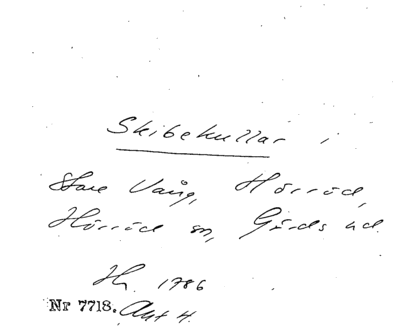 Skibekullar i
Store Vång, Hörröd,
Hörröd sn, Gärds hd
Hz. 1786
Nr 7718. Akt 4.